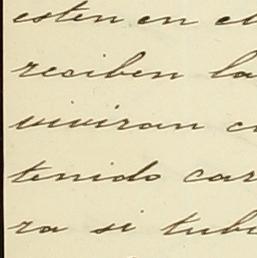 esten en el
reciben la
viviran c
tenido car
ra si tub